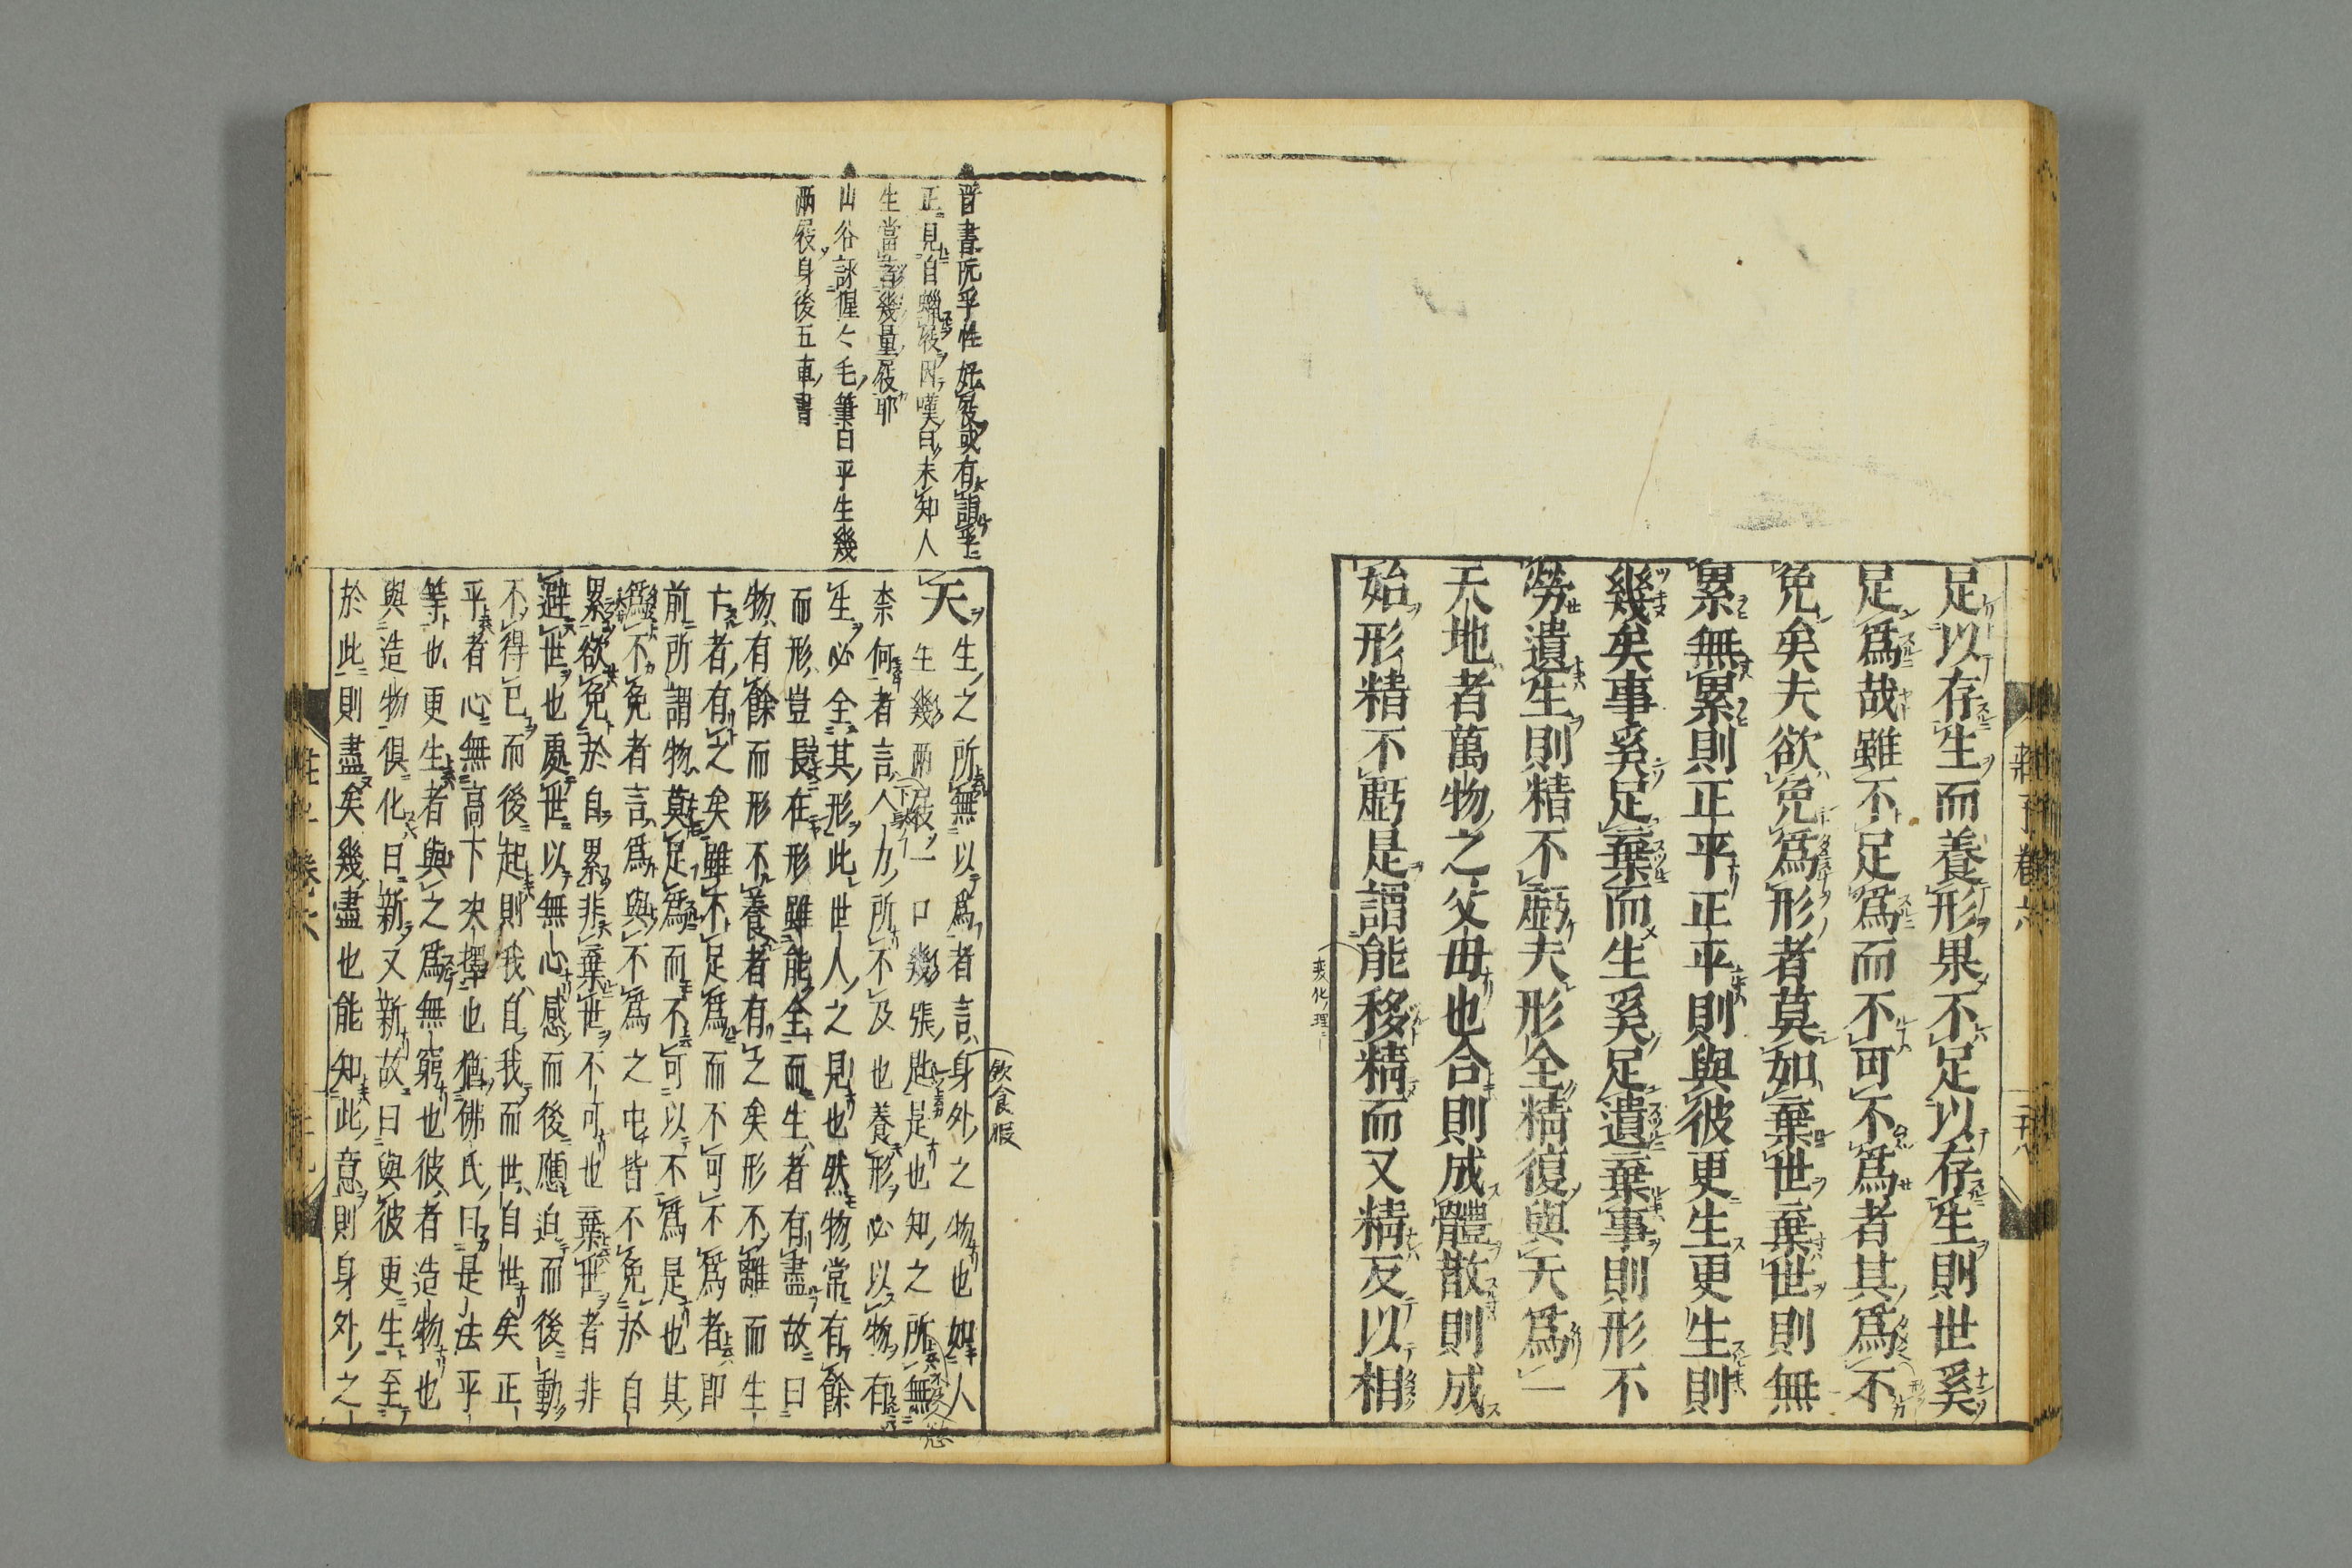 莊子卷六
足以存生而養形果不足以存生則世奚
足爲哉雖不足爲而不可不爲者其爲不
免矣夫欲免爲形者莫如棄世棄世則無
累無累則正平正平則與彼更生更生則
幾矣事奚足棄而生奚足遺棄事則形不
勞遺生則精不虧夫形全精復與天爲一
天地者萬物之父母也合則成體散則成
始形精不虧是謂能移精而又精反以相
変化ノ理ニ
晋書阮孚性好屐或有謂孚上
正見自蠟屐因嘆曰未知人
生當著幾量屐耶
山谷詠猩々毛筆曰平生幾
兩屐身後五車書
飲食服
生之所無以爲者言身外之物也如人
一生幾兩屐一口幾張匙是也知之所無
柰何者言人力所不及也養形必以物有
生必全其形此世人之見也然物常有餘
而形豈長在形雖能全而生者有盡故曰
物有餘而形不養者有之矣形不離而生
亡者有之矣雖不足爲而不可不爲者即
前所謂物莫足爲而不可以不爲是也其
爲不免者言爲與不爲之屯皆不免於自
累欲免於自累非棄世不可也棄世者非
避世也處世以無心感而後應迫而後動
不得已而後起則我自我而世自世矣正
平者心無高下决擇也猶佛氏曰是法平
等也更生者與之爲無窮也彼者造物也
與造物俱化日新又新故曰與彼更生至
於此則盡矣幾盡也能知此意則身外之